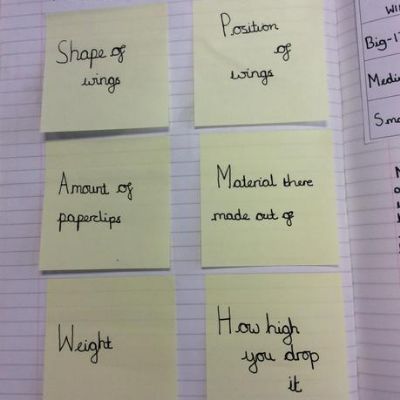 Shape of
wings
Position
of
wings
Amount of
paperclips
Material there
made out of
Weight
How high
you drop
it
Big-1